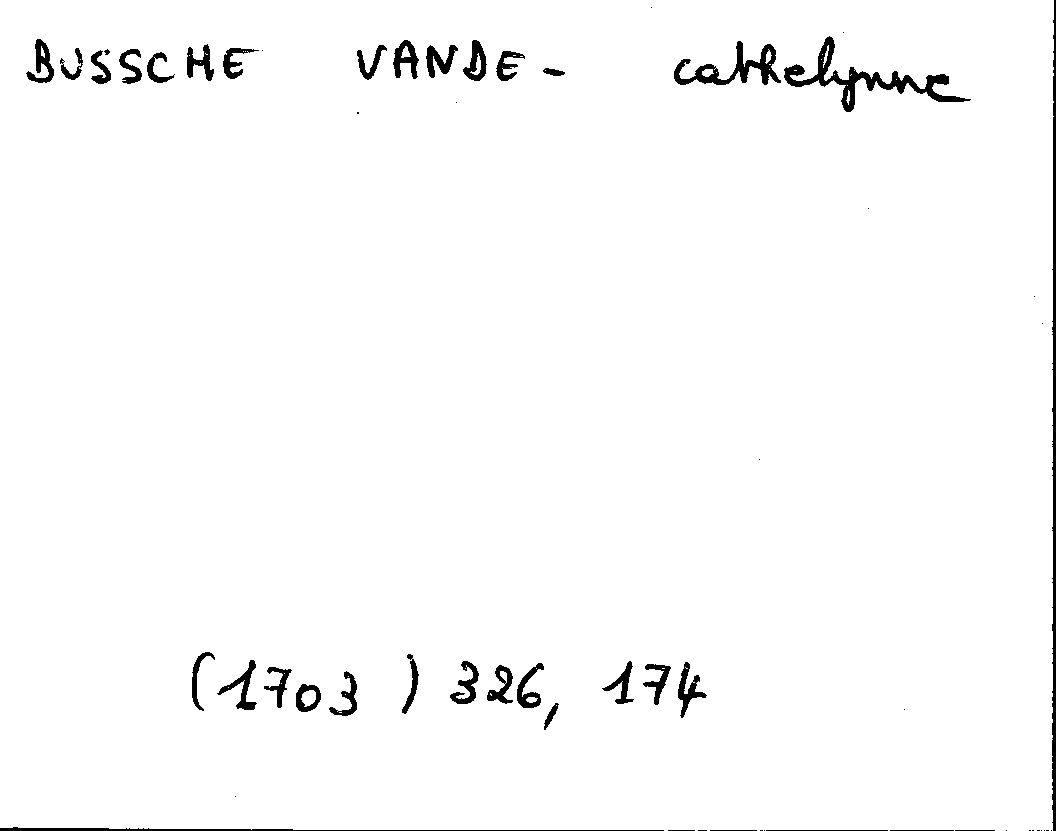 BUSSCHE VANDE- cathelynne
(1703) 326, 174